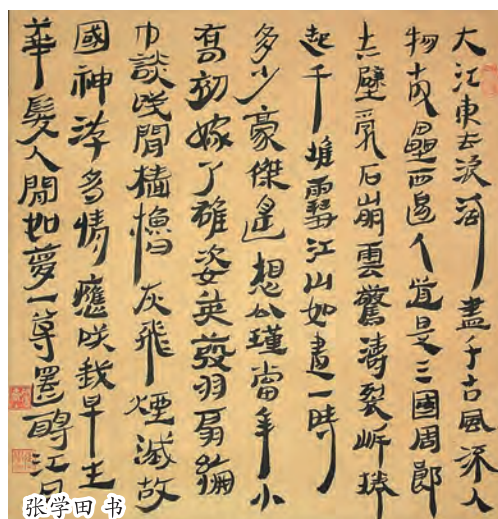 大江東去浪淘盡千古風流人
物故壘西邊人道是三國周郎
赤壁亂石崩雲驚濤裂岸捲
起千堆雪江山如畫一時
多少豪傑遙想公瑾當年小
喬初嫁了雄姿英發羽扇綸
巾談笑間檣櫓灰飛煙滅故
國神游多情應笑我早生
華髮人間如夢一尊還酹江月
张学田 书